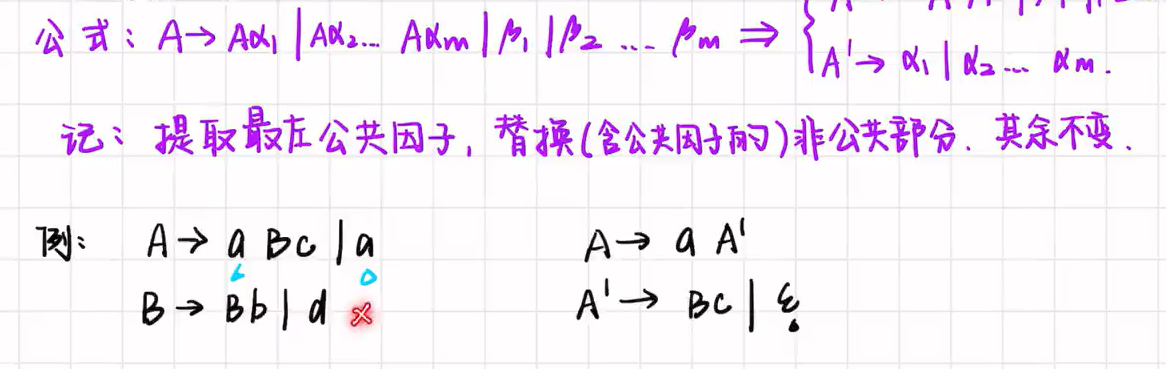 公式: A→ Aα₁ | Aα₂… Aαm | β₁ | β₂ … βm ⇒ {
A' → α₁ | α₂ … αm.
记: 提取最左公共因子, 替换(含公共因子的)非公共部分. 其余不变.
例: A → a Bc | a
B → Bb | d ×
A → a A'
A' → Bc | ε